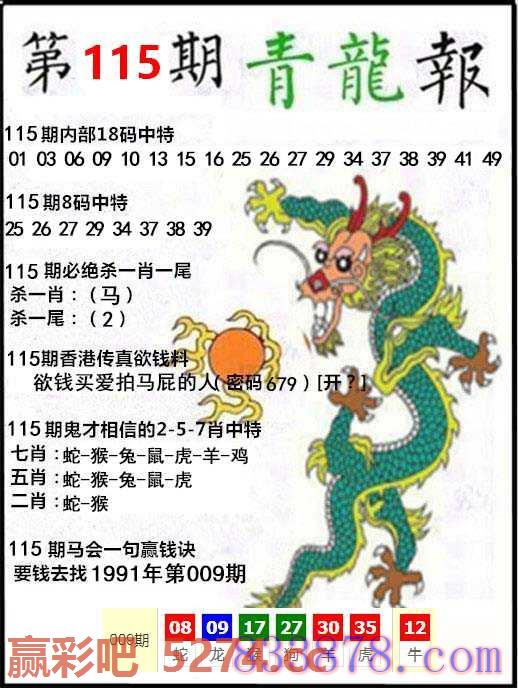 第115期青龍報
115期内部18码中特
01 03 06 09 10 13 15 16 25 26 27 29 34 37 38 39 41 49
115期8码中特
25 26 27 29 34 37 38 39
115期必绝杀一肖一尾
杀一肖：（马）
杀一尾：（2）
115期香港传真欲钱料
欲钱买爱拍马屁的人(密码679)[开？]
115期鬼才相信的2-5-7肖中特
七肖：蛇-猴-兔-鼠-虎-羊-鸡
五肖：蛇-猴-兔-鼠-虎
二肖：蛇-猴
115期马会一句赢钱诀
要钱去找1991年第009期
009期 08 09 17 27 30 35 12
蛇 龙 猴 狗 羊 虎 牛
赢彩吧
838878.com